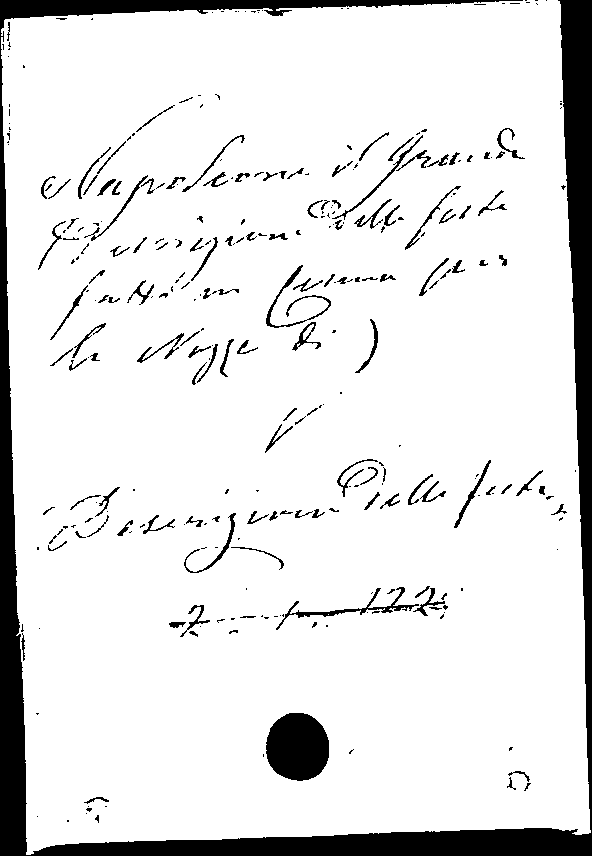 Napoleone il Grande
(Descrizione delle feste
fatte in Cesena per
le Nozze di)
V
Descrizione delle feste
2 1 122